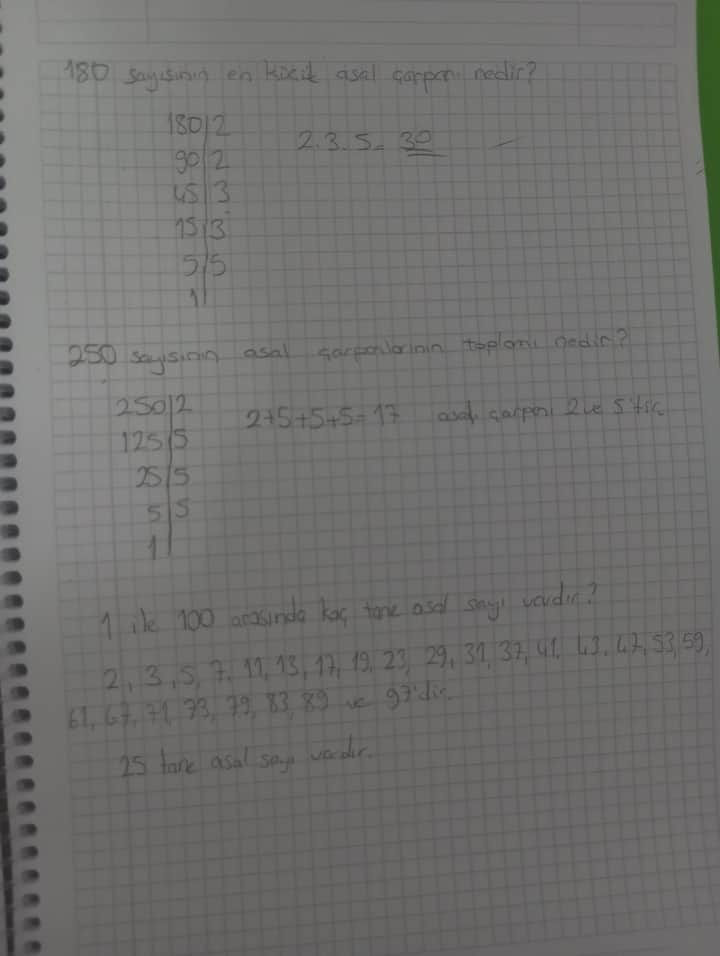 180 sayısının en küçük asal çarpanı nedir?
180 2
90 2
45 3
15 3
5 5
1
2.3.5= 30
250 sayısının asal çarpanlarının toplamı nedir?
250 2
125 5
25 5
5 5
1
2+5+5+5=17 asal çarpanı 2 ve 5'tir.
1 ile 100 arasında kaç tane asal sayı vardır?
2, 3, 5, 7, 11, 13, 17, 19, 23, 29, 31, 37, 41, 43, 47, 53, 59,
61, 67, 71, 73, 79, 83, 89 ve 97'dir.
25 tane asal sayı vardır.